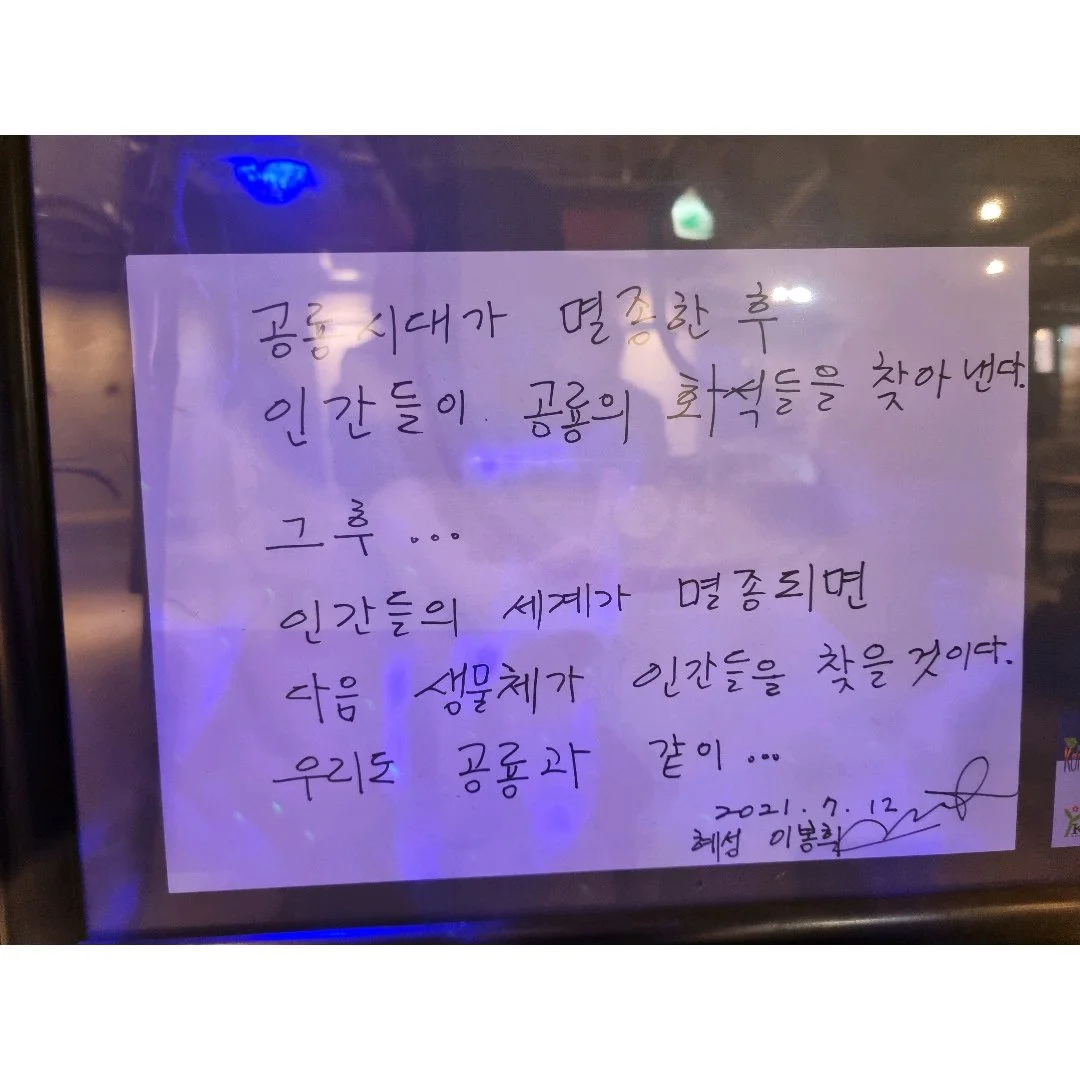 공룡시대가 멸종한 후
인간들이 공룡의 화석들을 찾아낸다.
그 후 ...
인간들의 세계가 멸종되면
다음 생물체가 인간들을 찾을것이다.
우리도 공룡과 같이 ...
2021. 7. 12
혜성 이봉희